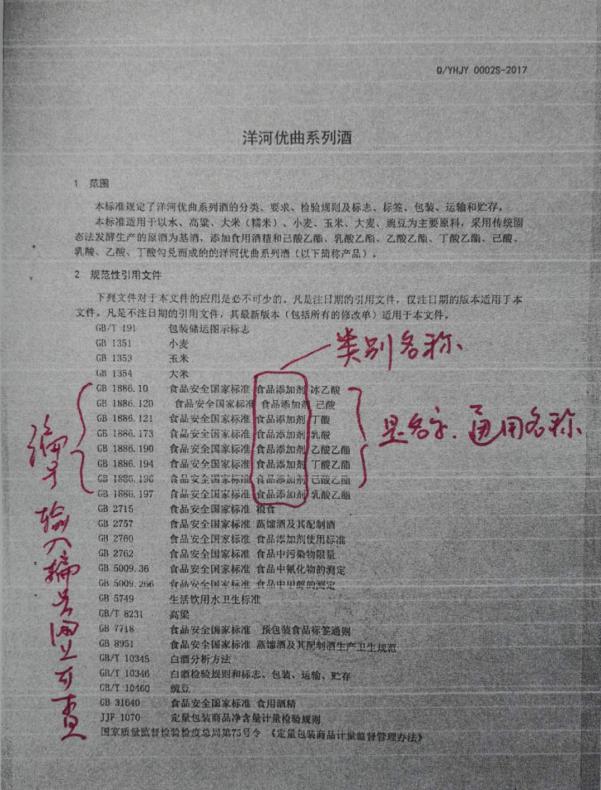 Q/YHJY 0002S-2017
洋河优曲系列酒
1 范围
本标准规定了洋河优曲系列酒的分类、要求、检验规则及标志、标签、包装、运输和贮存。
本标准适用于以水、高粱、大米（糯米）、小麦、玉米、大麦、豌豆为主要原料，采用传统固
态法发酵生产的原酒为基酒，添加食用酒精和己酸乙酯、乳酸乙酯、乙酸乙酯、丁酸乙酯、己酸、
乳酸、乙酸、丁酸勾兑而成的的洋河优曲系列酒（以下简称产品）。
2 规范性引用文件
下列文件对于本文件的应用是必不可少的。凡是注日期的引用文件，仅注日期的版本适用于本
文件。凡是不注日期的引用文件，其最新版本（包括所有的修改单）适用于本文件。
GB/T 191 包装储运图示标志
GB 1351 小麦
GB 1353 玉米
GB 1354 大米
类别名称
GB 1886.10 食品安全国家标准 食品添加剂 冰乙酸
GB 1886.120 食品安全国家标准 食品添加剂 己酸
GB 1886.121 食品安全国家标准 食品添加剂 丁酸
GB 1886.173 食品安全国家标准 食品添加剂 乳酸
GB 1886.190 食品安全国家标准 食品添加剂 乙酸乙酯
GB 1886.194 食品安全国家标准 食品添加剂 丁酸乙酯
GB 1886.196 食品安全国家标准 食品添加剂 己酸乙酯
GB 1886.197 食品安全国家标准 食品添加剂 乳酸乙酯
是名字、通用名称
GB 2715 食品安全国家标准 粮食
GB 2757 食品安全国家标准 蒸馏酒及其配制酒
GB 2760 食品安全国家标准 食品添加剂使用标准
GB 2762 食品安全国家标准 食品中污染物限量
GB 5009.36 食品安全国家标准 食品中氰化物的测定
GB 5009.266 食品安全国家标准 食品中甲醇的测定
GB 5749 生活饮用水卫生标准
GB/T 8231 高粱
GB 7718 食品安全国家标准 预包装食品标签通则
GB 8951 食品安全国家标准 蒸馏酒及其配制酒生产卫生规范
GB/T 10345 白酒分析方法
GB/T 10346 白酒检验规则和标志、包装、运输、贮存
GB/T 10460 豌豆
GB 31640 食品安全国家标准 食用酒精
JJF 1070 定量包装商品净含量计量检验规则
国家质量监督检验检疫总局第75号令 《定量包装商品计量监督管理办法》
编号
输入编号网上可查